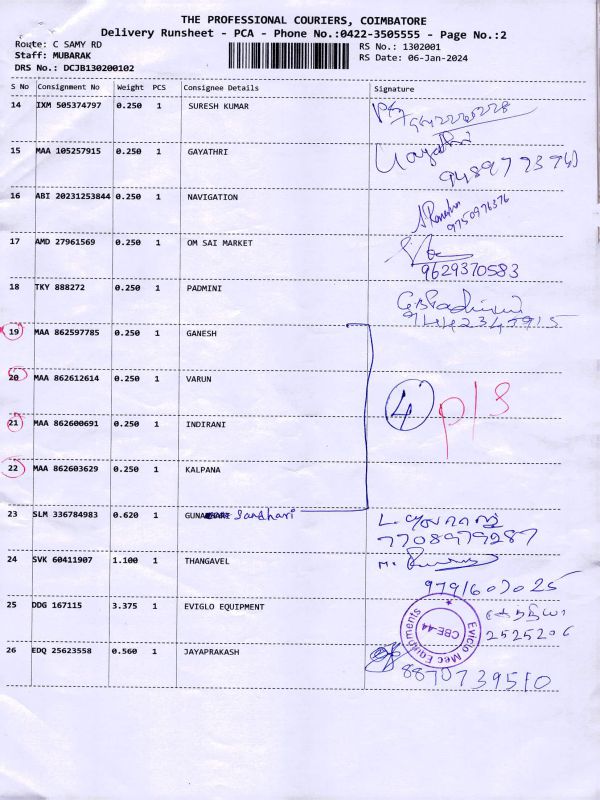 THE PROFESSIONAL COURIERS, COIMBATORE
Delivery Runsheet - PCA - Phone No.:0422-3505555 - Page No.:2
Route: C SAMY RD
RS No.: 1302001
Staff: MUBARAK
RS Date: 06-Jan-2024
DRS No.: DCJB130200102
S No Consignment No Weight PCS Consignee Details Signature
14 IXM 505374797 0.250 1 SURESH KUMAR
15 MAA 105257915 0.250 1 GAYATHRI Gayathri
16 ABI 20231253844 0.250 1 NAVIGATION
9750976376
17 AMD 27961569 0.250 1 OM SAI MARKET
9629370583
18 TKY 888272 0.250 1 PADMINI
9442345915
19 MAA 862597785 0.250 1 GANESH
20 MAA 862612614 0.250 1 VARUN
4 p/s
21 MAA 862600691 0.250 1 INDIRANI
22 MAA 862603629 0.250 1 KALPANA
23 SLM 336784983 0.620 1 GUNA
7708979287
24 SVK 60411907 1.100 1 THANGAVEL
9791607025
25 DDG 167115 3.375 1 EVIGLO EQUIPMENT
2525206
Eviglo Mec Equipments
CBE-44
26 EDQ 25623558 0.560 1 JAYAPRAKASH
8870739510